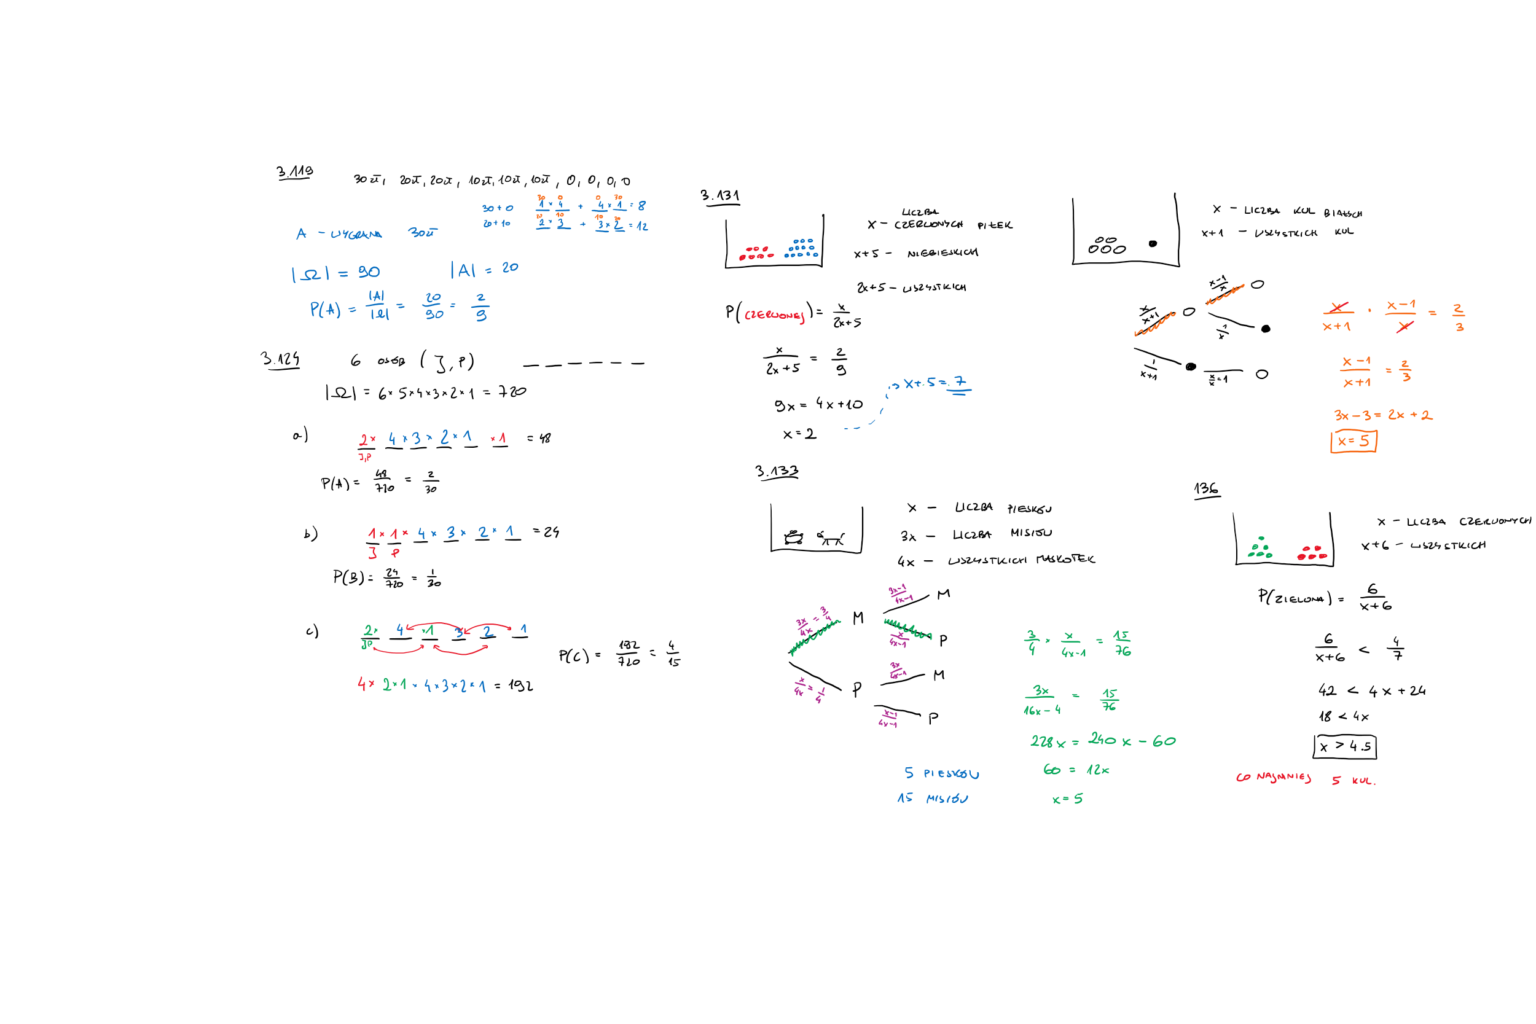 3.119
30 zł, 20 zł, 20 zł, 10 zł, 10 zł, 10 zł, 0, 0, 0, 0
30 0 0 30
30 + 0 1 × 4 + 4 × 1 = 8
20 10 10 20
20 + 10 2 × 3 + 3 × 2 = 12
A - WYGRANA 30 zł
|Ω| = 90 |A| = 20
P(A) = |A|/|Ω| = 20/90 = 2/9
3.124 6 osób (J, P) _ _ _ _ _ _
|Ω| = 6 × 5 × 4 × 3 × 2 × 1 = 720
a) 2 × 4 × 3 × 2 × 1 × 1 = 48
J,P
P(A) = 48/720 = 2/30
b) 1 × 1 × 4 × 3 × 2 × 1 = 24
J P
P(B) = 24/720 = 1/30
c) 2 × 4 × 1 3 2 1
JP
P(C) = 192/720 = 4/15
4 × 2 × 1 × 4 × 3 × 2 × 1 = 192
3.131
LICZBA
x - CZERWONYCH PIŁEK
x + 5 - NIEBIESKICH
2x + 5 - WSZYSTKICH
P(CZERWONEJ) = x/2x+5
x/2x+5 = 2/9
9x = 4x + 10
x = 2
x + 5 = 7
x - LICZBA KUL BIAŁYCH
x + 1 - WSZYSTKICH KUL
x-1/x
x/x+1
1/x
1/x+1
x/x = 1
x/x+1 · x-1/x = 2/3
x-1/x+1 = 2/3
3x - 3 = 2x + 2
x = 5
3.133
x - LICZBA PIESKÓW
3x - LICZBA MISIÓW
4x - WSZYSTKICH MASKOTEK
3x/4x = 3/4 M
3x-1/4x-1 M
x/4x-1 P
x/4x = 1/4 P
3x/4x-1 M
x-1/4x-1 P
3/4 · x/4x-1 = 15/76
3x/16x-4 = 15/76
228x = 240x - 60
60 = 12x
x = 5
5 PIESKÓW
15 MISIÓW
136
x - LICZBA CZERWONYCH
x + 6 - WSZYSTKICH
P(ZIELONA) = 6/x+6
6/x+6 < 4/7
42 < 4x + 24
18 < 4x
x > 4.5
CO NAJMNIEJ 5 KUL.